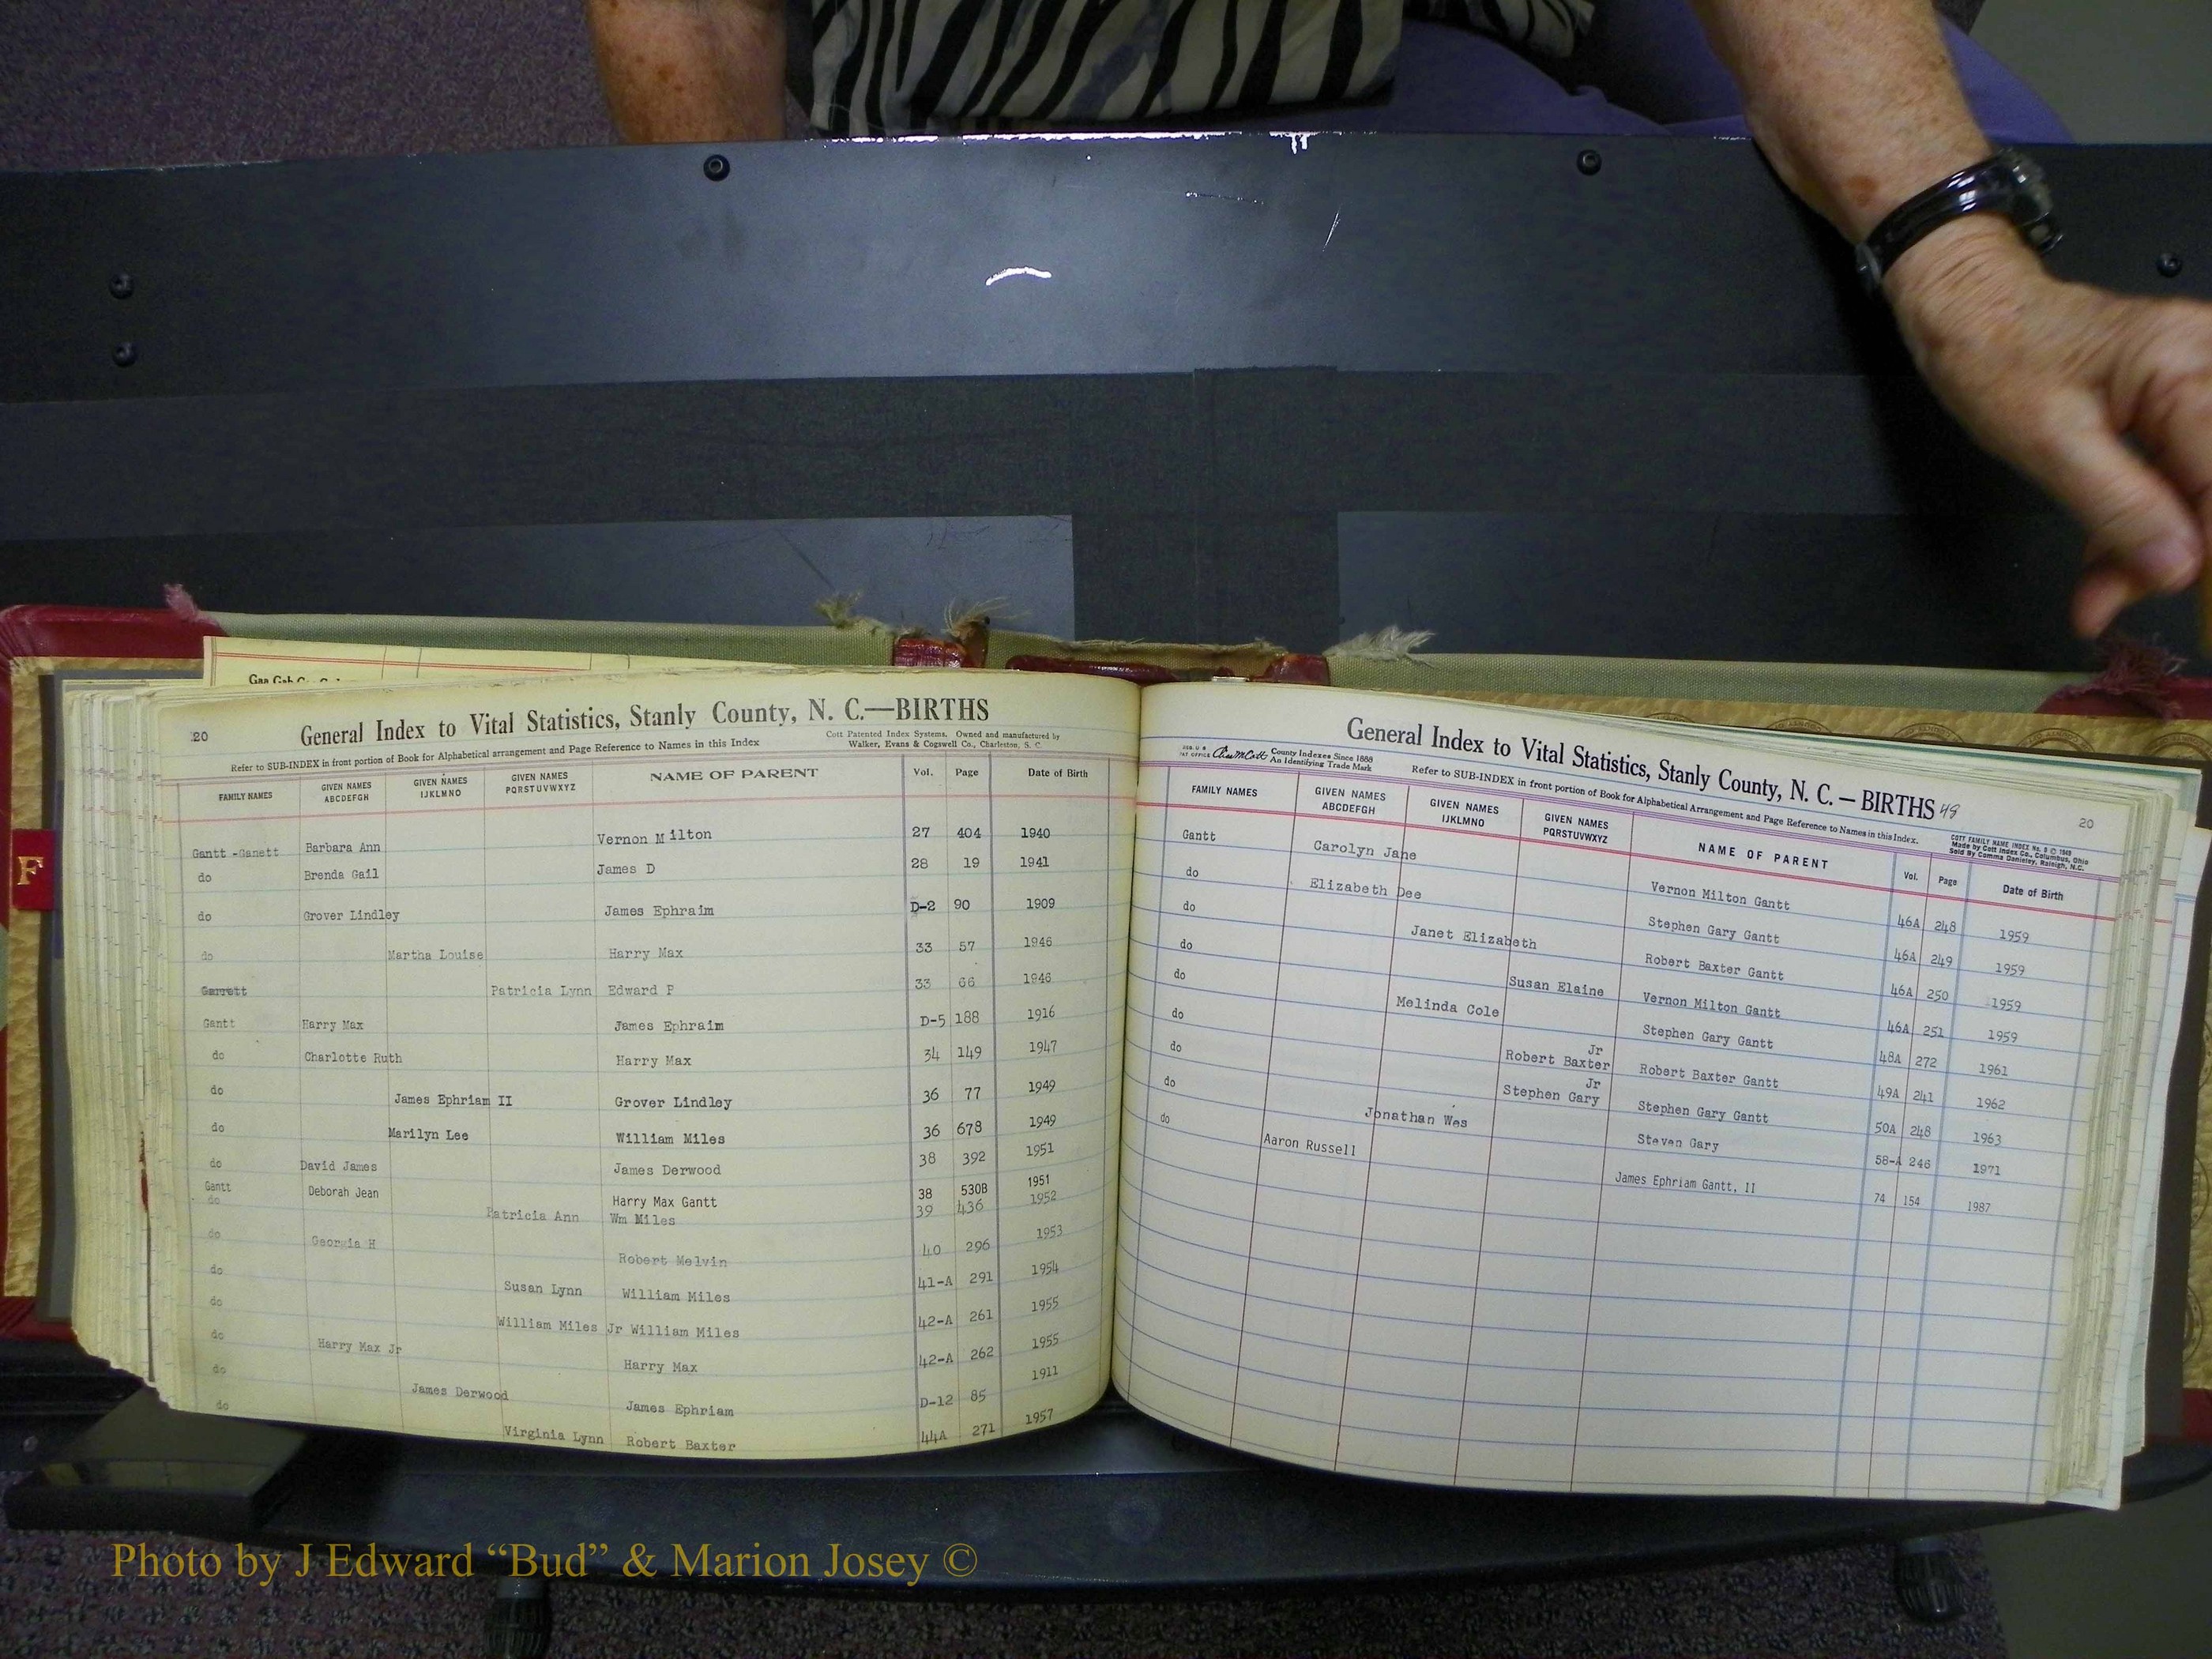 Gaa Gab
F
20
General Index to Vital Statistics, Stanly County, N. C.—BIRTHS
Refer to SUB-INDEX in front portion of Book for Alphabetical arrangement and Page Reference to Names in this Index
Cott Patented Index Systems. Owned and manufactured by
Walker, Evans & Cogswell Co., Charleston, S. C.
FAMILY NAMES GIVEN NAMES ABCDEFGH GIVEN NAMES IJKLMNO GIVEN NAMES PQRSTUVWXYZ NAME OF PARENT Vol. Page Date of Birth
Gantt -Ganett Barbara Ann Vernon Milton 27 404 1940
do Brenda Gail James D 28 19 1941
do Grover Lindley James Ephraim D-2 90 1909
do Martha Louise Harry Max 33 57 1946
Garrett Patricia Lynn Edward P 33 66 1946
Gantt Harry Max James Ephraim D-5 188 1916
do Charlotte Ruth Harry Max 34 149 1947
do James Ephriam II Grover Lindley 36 77 1949
do Marilyn Lee William Miles 36 678 1949
do David James James Derwood 38 392 1951
Gantt Deborah Jean Harry Max Gantt 38 530B 1951
do Patricia Ann Wm Miles 39 436 1952
do Georgia H Robert Melvin 40 296 1953
do Susan Lynn William Miles 41-A 291 1954
do William Miles Jr William Miles 42-A 261 1955
do Harry Max Jr Harry Max 42-A 262 1955
do James Derwood James Ephriam D-12 85 1911
do Virginia Lynn Robert Baxter 44A 271 1957
General Index to Vital Statistics, Stanly County, N. C. — BIRTHS 48
20
County Indexes Since 1888
An Identifying Trade Mark
Refer to SUB-INDEX in front portion of Book for Alphabetical Arrangement and Page Reference to Names in this Index.
COTT FAMILY NAME INDEX No. 9 © 1949
Made by Cott Index Co., Columbus, Ohio
Sold By Comma Danieley, Raleigh, N.C.
FAMILY NAMES GIVEN NAMES ABCDEFGH GIVEN NAMES IJKLMNO GIVEN NAMES PQRSTUVWXYZ NAME OF PARENT Vol. Page Date of Birth
Gantt Carolyn Jane Vernon Milton Gantt 46A 248 1959
do Elizabeth Dee Stephen Gary Gantt 46A 249 1959
do Janet Elizabeth Robert Baxter Gantt 46A 250 1959
do Susan Elaine Vernon Milton Gantt 46A 251 1959
do Melinda Cole Stephen Gary Gantt 48A 272 1961
do Robert Baxter Jr Robert Baxter Gantt 49A 241 1962
do Stephen Gary Jr Stephen Gary Gantt 50A 248 1963
do Jonathan Wes Steven Gary 58-A 246 1971
do Aaron Russell James Ephriam Gantt, II 74 154 1987
Photo by J Edward “Bud” & Marion Josey ©